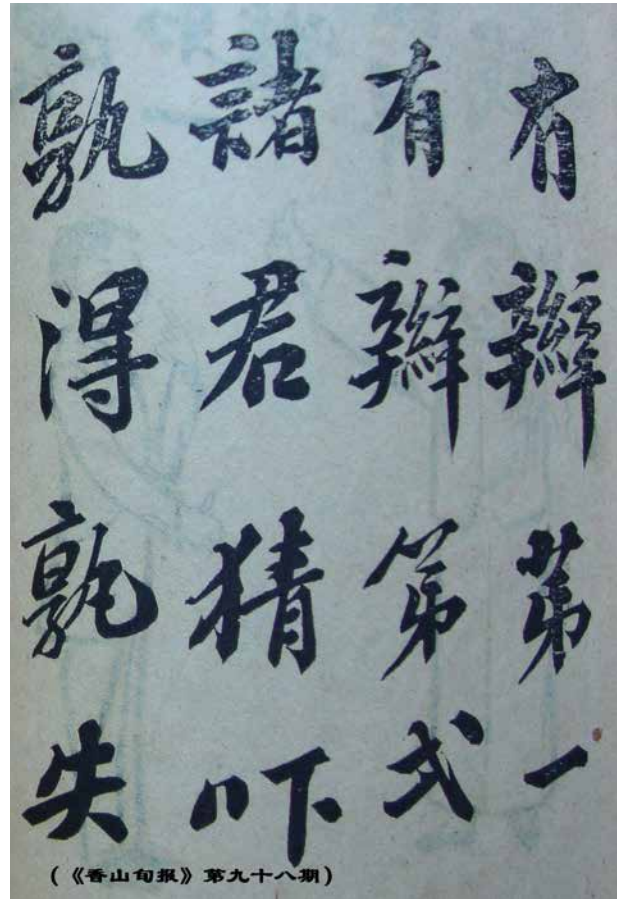 冇辮苐一
有辮第弍
諸君猜吓
孰得孰失
(《香山旬报》第九十八期)